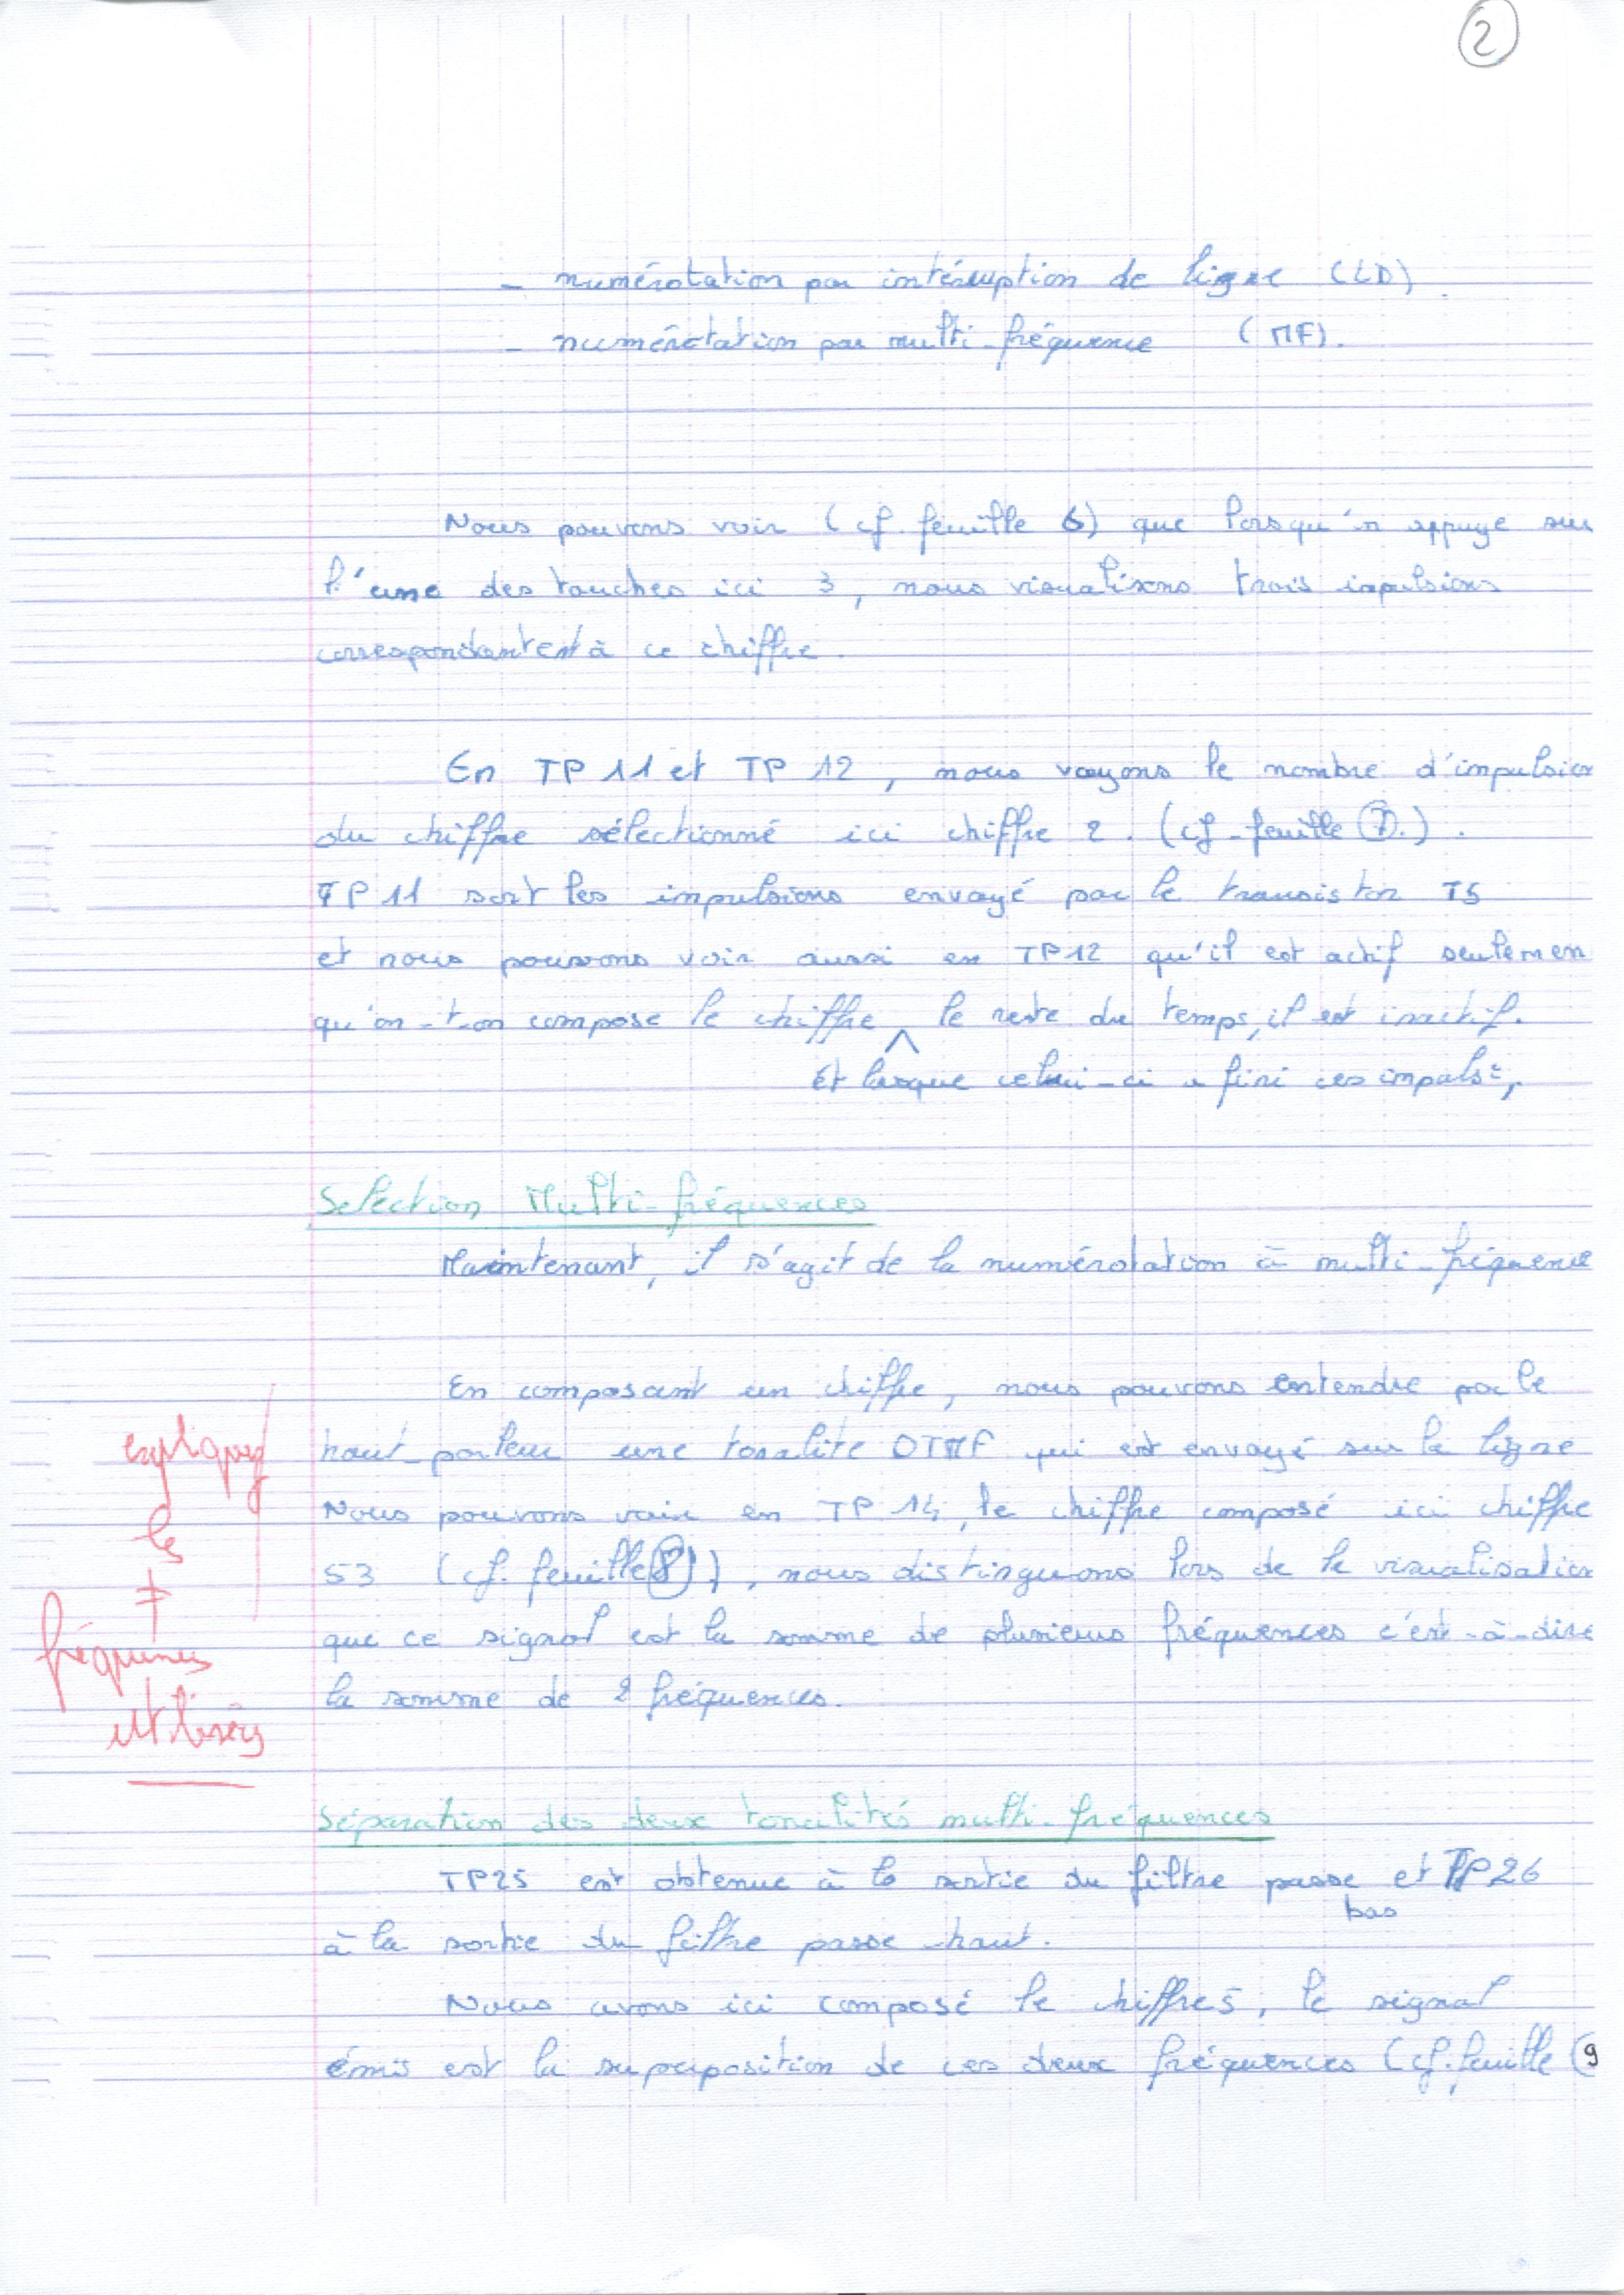 2
- numérotation par intéruption de ligne (LD).
- numérotation par multi-fréquence (MF).
Nous pouvons voir (cf. feuille 6) que lorsqu'on appuye sur
l'une des touches ici 3, nous visualisons trois impulsions
correspondantent à ce chiffre.
En TP 11 et TP 12, nous voyons le nombre d'impulsion
du chiffre sélectionné ici chiffre 2. (cf. feuille 7.).
TP 11 sont les impulsions envoyé par le transistor T5
et nous pouvons voir aussi en TP12 qu'il est actif seulemen
qu'on-t-on compose le chiffre ^ le reste du temps, il est inactif.
Et lorsque celui-ci a fini ces impuls°,
Selection Multi-fréquences
Maintenant, il s'agit de la numérotation à multi-fréquence
En composant un chiffre, nous pouvons entendre par le
haut-parleur une tonalité DTMF qui est envoyé sur la ligne
Nous pouvons voir en TP 14, le chiffre composé ici chiffre
53 (cf. feuille 8), nous distinguons lors de la visualisation
que ce signal est la somme de plusieurs fréquences c'est-à-dire
la somme de 2 fréquences.
expliquez
les
≠
fréquences
utilisées
Séparation des deux tonalités multi-fréquences
TP25 est obtenue à la sortie du filtre passe et TP26
bas
à la sortie du filtre passe-haut.
Nous avons ici composé le chiffre 5, le signal
émis est la superposition de ces deux fréquences (cf. feuille 9